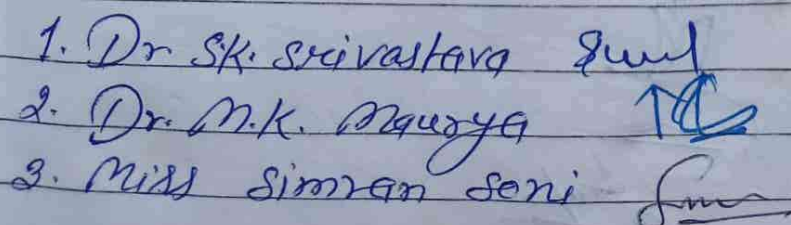 1. Dr SK. Srivastava
2. Dr. M.K. Maurya
3. Miss Simran Soni